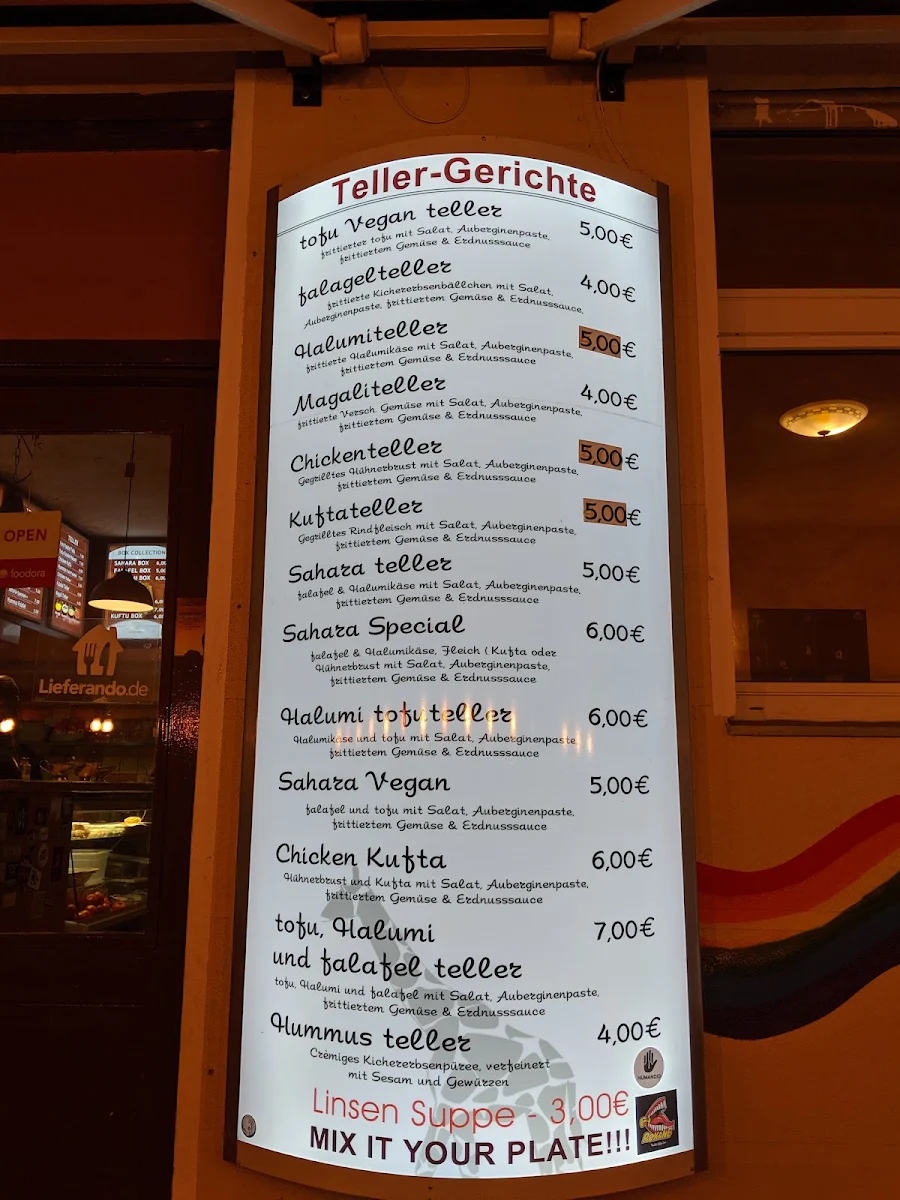 Teller-Gerichte
tofu Vegan teller 5,00€
frittierter tofu mit Salat, Auberginenpaste,
frittiertem Gemüse & Erdnusssauce
falagelteller 4,00€
frittierte Kichererbsenbällchen mit Salat,
Auberginenpaste, frittiertem Gemüse & Erdnusssauce,
Halumiteller 5,00€
frittierte Halumikäse mit Salat, Auberginenpaste,
frittiertem Gemüse & Erdnusssauce
Magaliteller 4,00€
frittierte Versch. Gemüse mit Salat, Auberginenpaste,
frittiertem Gemüse & Erdnusssauce
Chickenteller 5,00€
Gegrilltes Hühnerbrust mit Salat, Auberginenpaste,
frittiertem Gemüse & Erdnusssauce
Kuftateller 5,00€
Gegrilltes Rindfleisch mit Salat, Auberginenpaste,
frittiertem Gemüse & Erdnusssauce
Sahara teller 5,00€
falafel & Halumikäse mit Salat, Auberginenpaste,
frittiertem Gemüse & Erdnusssauce
Sahara Special 6,00€
falafel & Halumikäse, Fleich (Kufta oder
Hühnerbrust mit Salat, Auberginenpaste,
frittiertem Gemüse & Erdnusssauce
Halumi tofuteller 6,00€
Halumikäse und tofu mit Salat, Auberginenpaste
frittiertem Gemüse & Erdnusssauce
Sahara Vegan 5,00€
falafel und tofu mit Salat, Auberginenpaste,
frittiertem Gemüse & Erdnusssauce
Chicken Kufta 6,00€
Hühnerbrust und Kufta mit Salat, Auberginenpaste,
frittiertem Gemüse & Erdnusssauce
tofu, Halumi 7,00€
und falafel teller
tofu, Halumi und falafel mit Salat, Auberginenpaste,
frittiertem Gemüse & Erdnusssauce
Hummus teller 4,00€
Crèmiges Kichererbsenpüree, verfeinert
mit Sesam und Gewürzen
Linsen Suppe - 3,00€
MIX IT YOUR PLATE!!!
OPEN
foodora
Lieferando.de
BOX COLLECTION
SAHARA BOX
KUFTU BOX